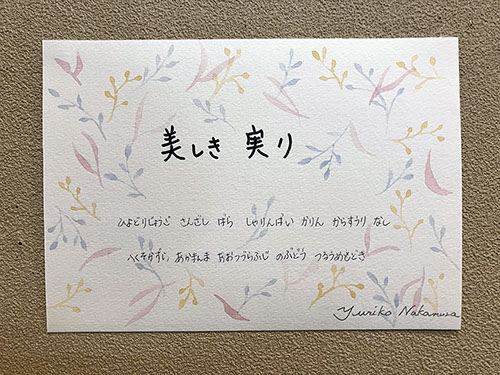 美しき 実り
ひよどりじょうご さんざし ばら しゃりんばい かりん からすうり なし
へくそかずら, あかまんま あおつづらふじ のぶどう つるうめもどき
Yuriko Nakamura